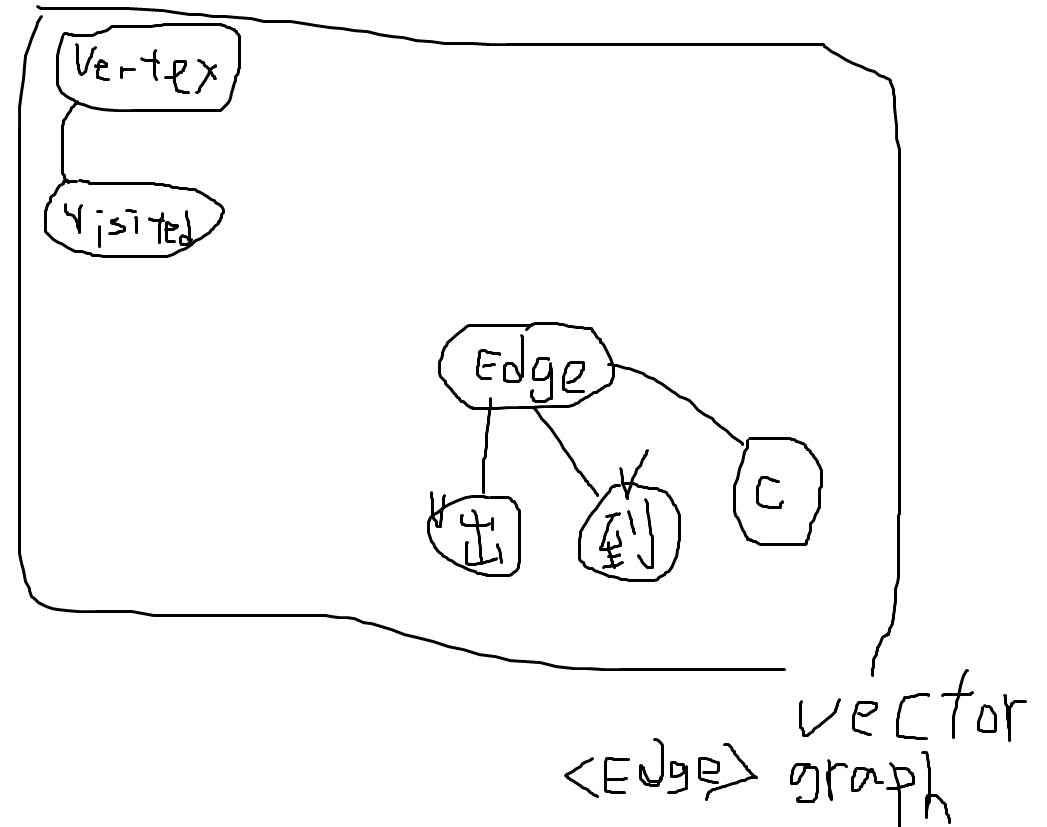 Vertex
Visited
Edge
V 出
V 到
C
vector
<Edge> graph